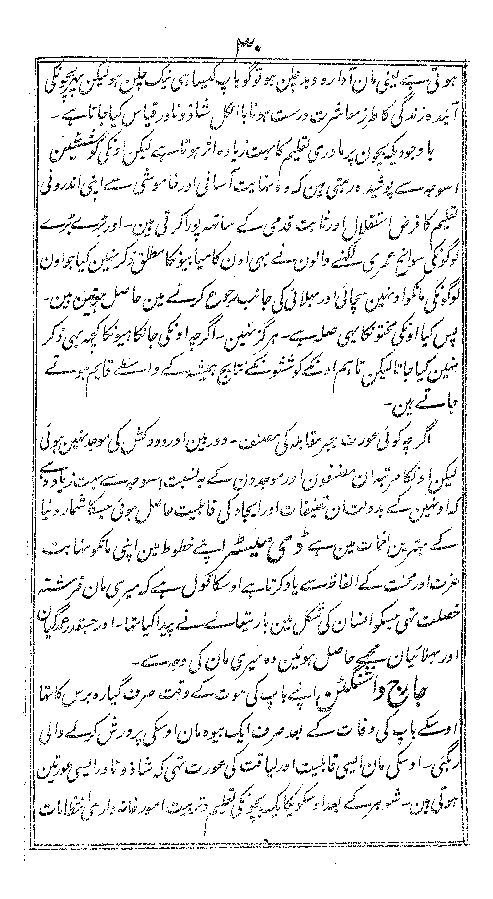 ۳۰
ہوتی ہے یعنی مان آوارہ و بدچلن ہو تو گو باپ کیسا ہی نیک چلن ہو لیکن پھر بچونکی
آیندہ زندگی کا طرز معاشرت درست ہونا بالکل شاذ و نادر قیاس کیا جاتا ہے۔
باوجودیکہ بچون پر مادری تعلیم کا بہت زیادہ اثر ہوتا ہے لیکن اونکی کوششین
اسوجہ سے پوشیدہ رہتی ہین کہ وہ نہایت آسانی اور خاموشی سے اپنی اندرونی
تعلیم کا فرض استقلال اور ثابت قدمی کے ساتھ پورا کرتی ہین۔ اور بڑے بڑے
لوگونکی سوانح عمری لکھنے والون نے بھی اون کامیابیونکا مطلق ذکر نہین کیا جو اون
لوگونکی مانکو اونہین سچائی اور بھلائی کی جانب رجوع کرنے مین حاصل ہوئین ہین۔
پس کیا اونکی محنتونکا یہی صلہ ہے۔ ہرگز نہین۔ اگرچہ اونکی جانکاہیونکا کچھہ بھی ذکر
نہین کیا جاتا لیکن تاہم اونکے کوششونکے نتایج ہمیشہ کے واسطے قایم ہوتے
جاتے ہین۔
اگرچہ کوئی عورت جبر مقابلہ کی مصنف۔ دوربین اور دودکش کی موجد نہین ہوئی
لیکن اونکا مرتبہ ان مصنفون اور موجدون کے بہ نسبت اسوجہ سے بہت زیادہ ہے
کہ اونہین کے بدولت ان تصنیفات اور ایجاد کی قابلیت حاصل ہوئی جسکا شمار دنیا
کے بہترین اشخاص مین ہے ڈی میسٹر اپنے خطوط مین اپنی مانکو نہایت
عزت اور محبت کے الفاظ سے یاد کرتا ہے اوسکا قول ہے کہ میری مان فرشتہ
خصلت تھی جسکو انسان کی شکل مین باریتعالے نے پیدا کیا تھا۔ اور جسقدر بزرگیان
اور بھلائیان مجھے حاصل ہوئین وہ میری مان کی وجہ سے۔
جارج واشنگٹن اپنے باپ کی موت کے وقت صرف گیارہ برس کا تھا
اوسکے باپ کی وفات کے بعد صرف ایک بیوہ مان اوسکی پرورش کرنے والی
رہگئی۔ اوسکی مان ایسی قابلیت اور لیاقت کی عورت تھی کہ شاذ و نادر ایسی عورتین
ہوتی ہین۔ شوہر کے بعد اوسکو یکایک بچونکی تعلیم و تربیت امور خانہ داری انتظامات